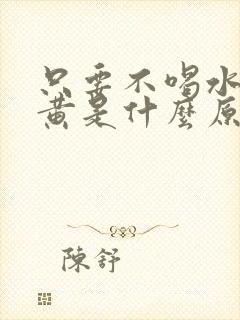 只要不喝水
黃是什麼原
陳舒